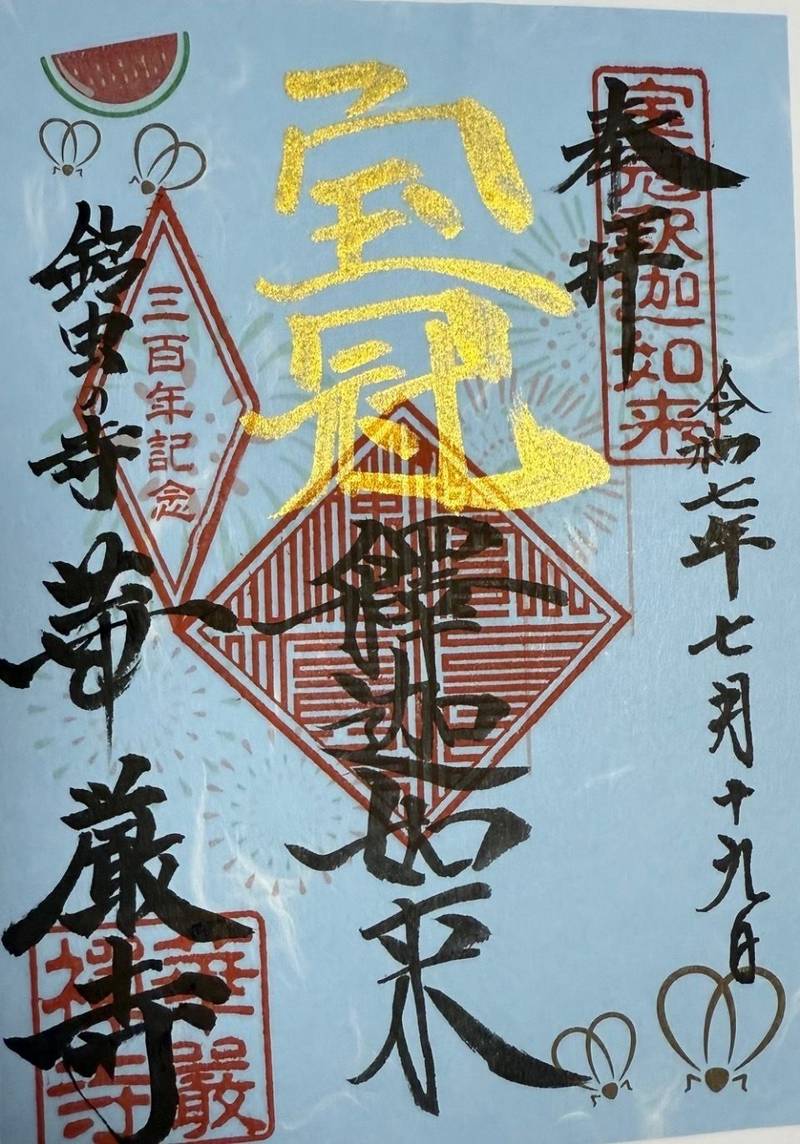 奉拝
宝冠釈迦如来
令和七年七月十九日
宝冠
釋迦如来
三百年記念
鈴虫の寺
華厳寺
華嚴
禅寺